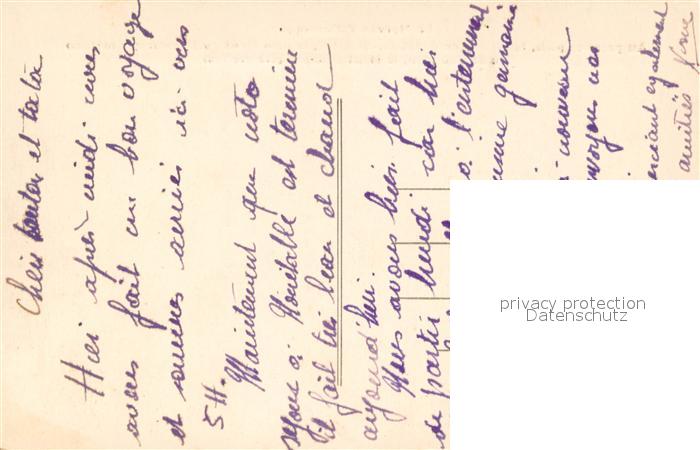 Chers tonton et tata
Hier après-midi nous
avons fait un bon voyage
et sommes arrivés ici vers
5 H. Maintenant que notre
séjour à est terminé
il fait très beau et chaud
aujourd'hui.
Nous avons bien fait
de partir lundi car hier
à l'enterrement
germaine
nouveau
envoyons nos
également
amitiés
privacy protection
Datenschutz